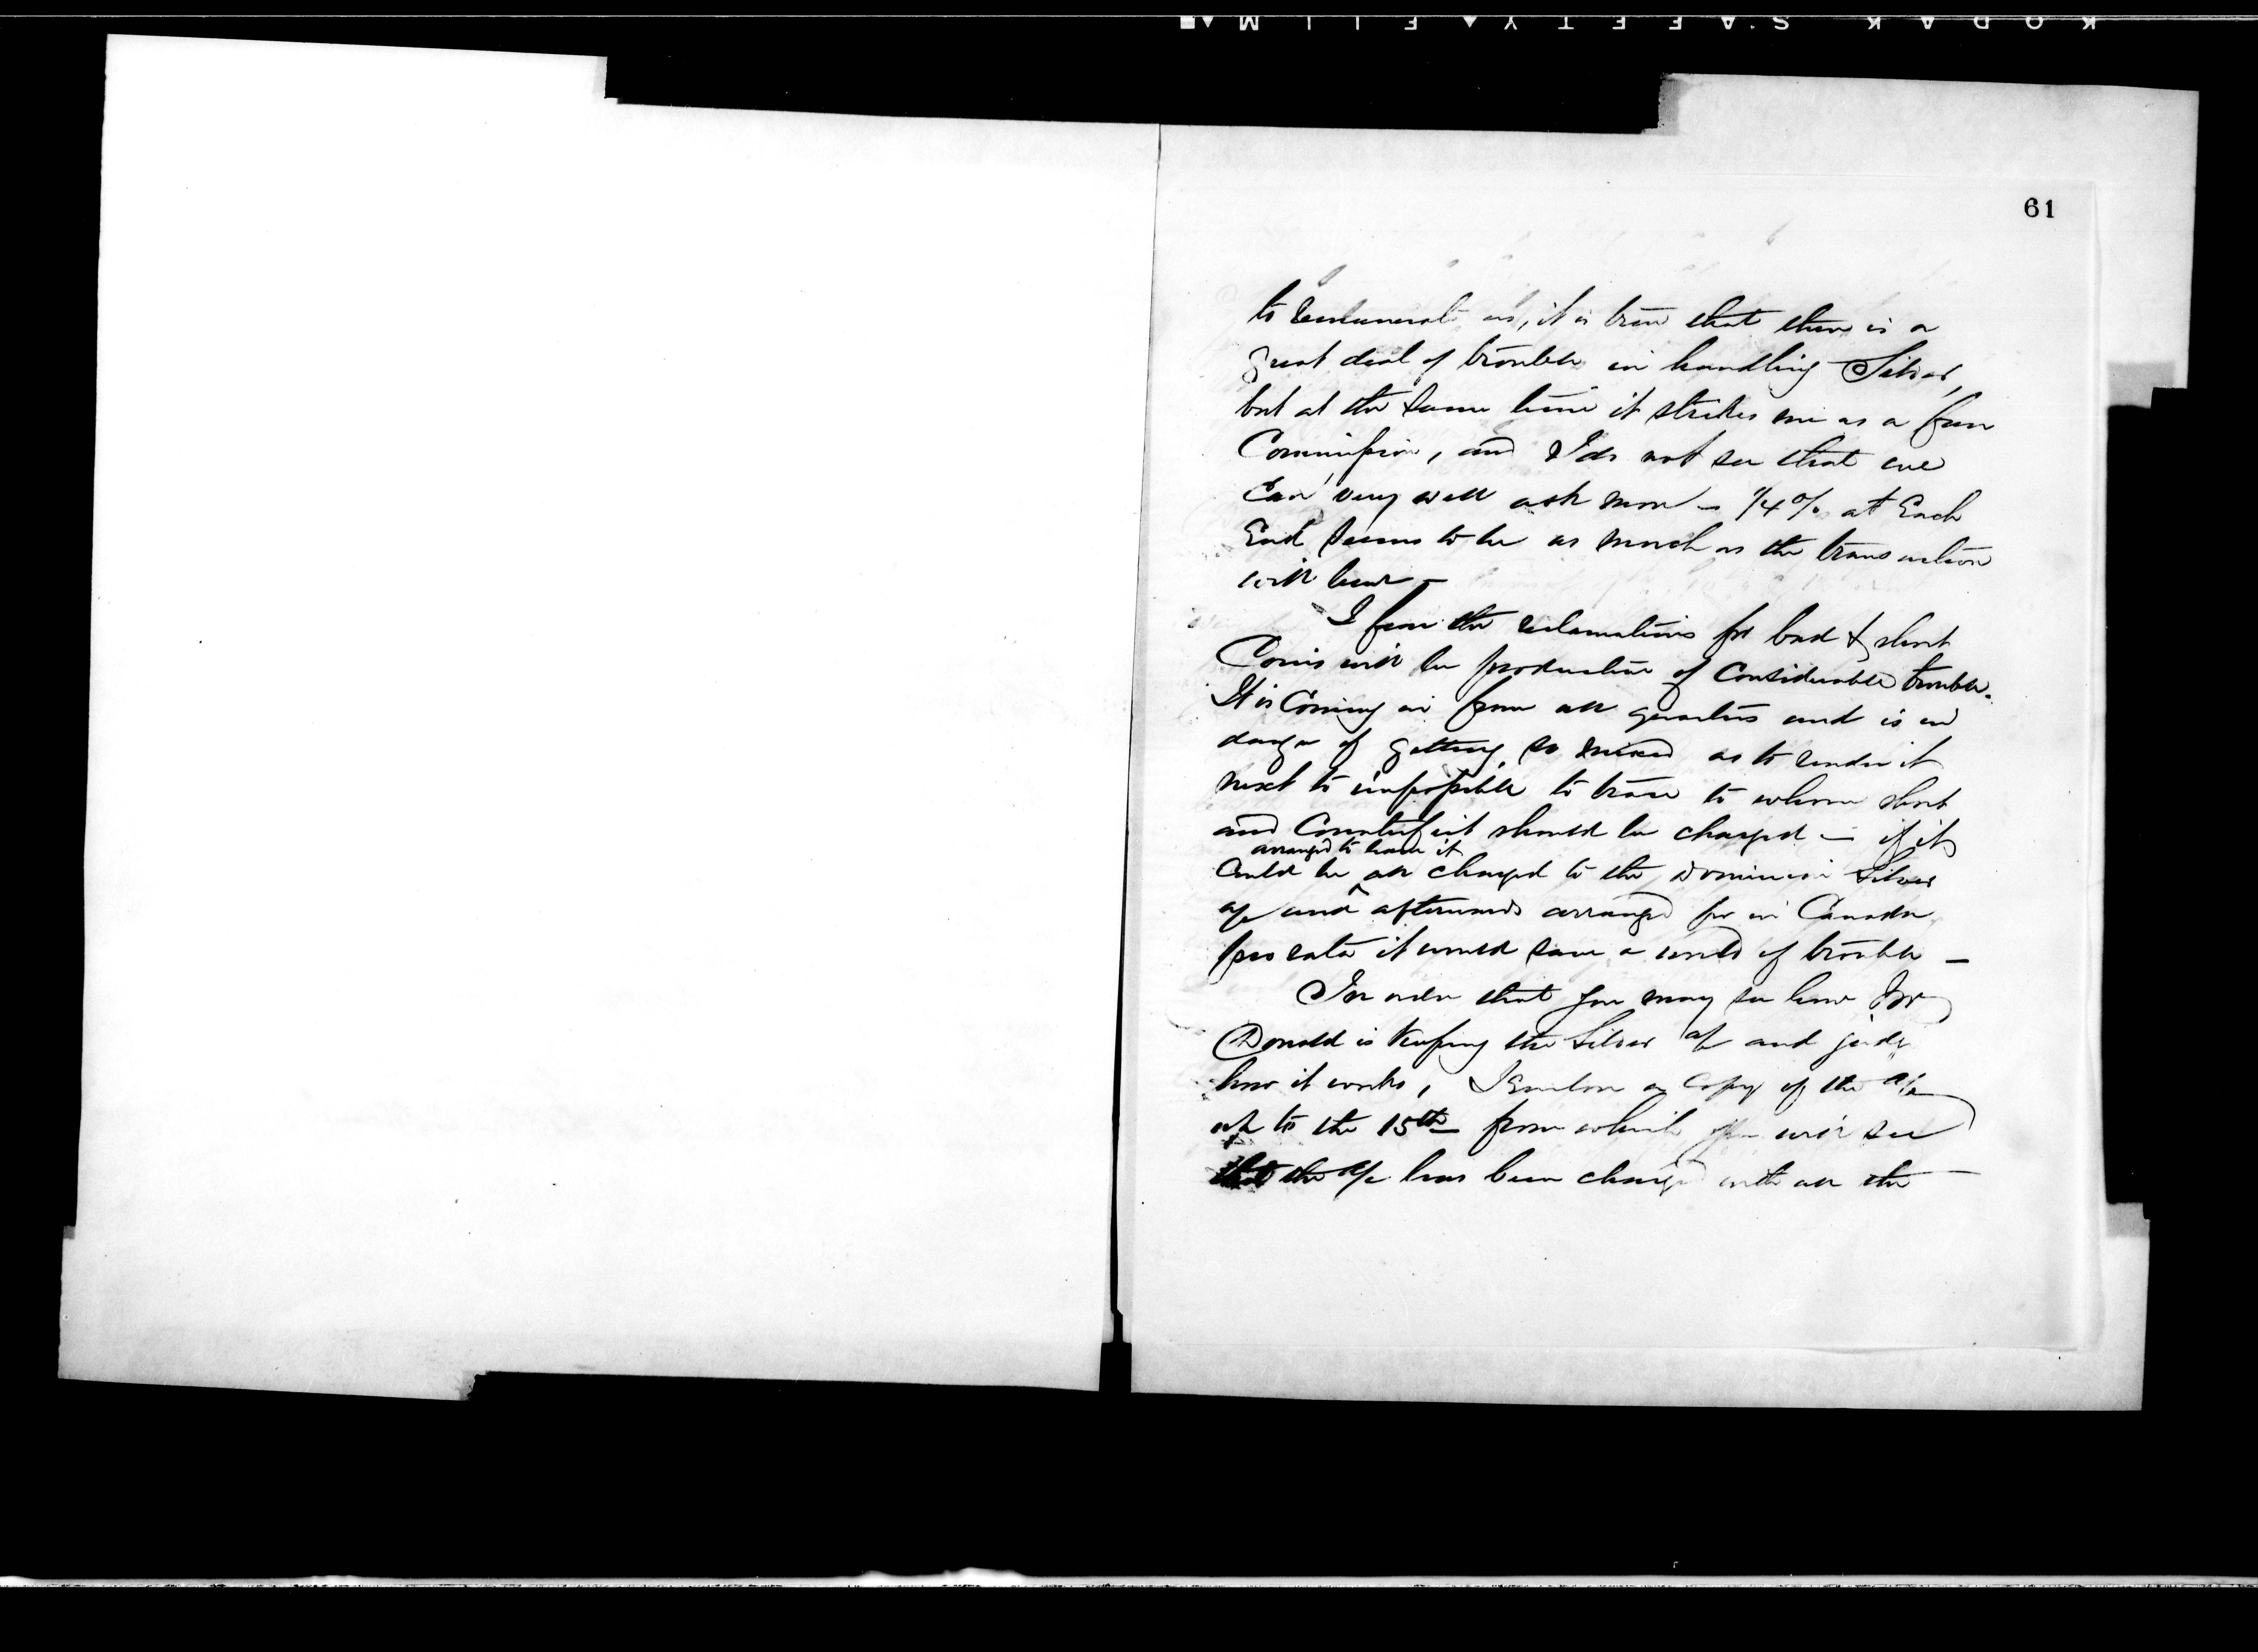 KODAK SAFETY FILM
61
to remunerate us, it is true that there is a
great deal of trouble in handling Silver,
but at the same time it strikes me as a fair
Commission, and I do not see that we
Can very well ask more – 1/4% at Each
End seems to be as much as the transaction
will bear –
I fear the reclamations for bad & short
Coins will be productive of Considerable trouble.
It is Coming in from all quarters and is in
danger of getting so mixed as to render it
next to impossible to trace to whom short
and Counterfeit should be charged – if it
arranged to have it
Could be all charged to the Dominion Silver
a/c and afterwards arranged for in Canada
pro rata it would save a world of trouble –
In order that you may see how Mr
Donald is Keeping the Silver a/c and judge
how it works, I Enclose a Copy of the a/c
up to the 15th from which you will see
that the a/c has been charged with all the